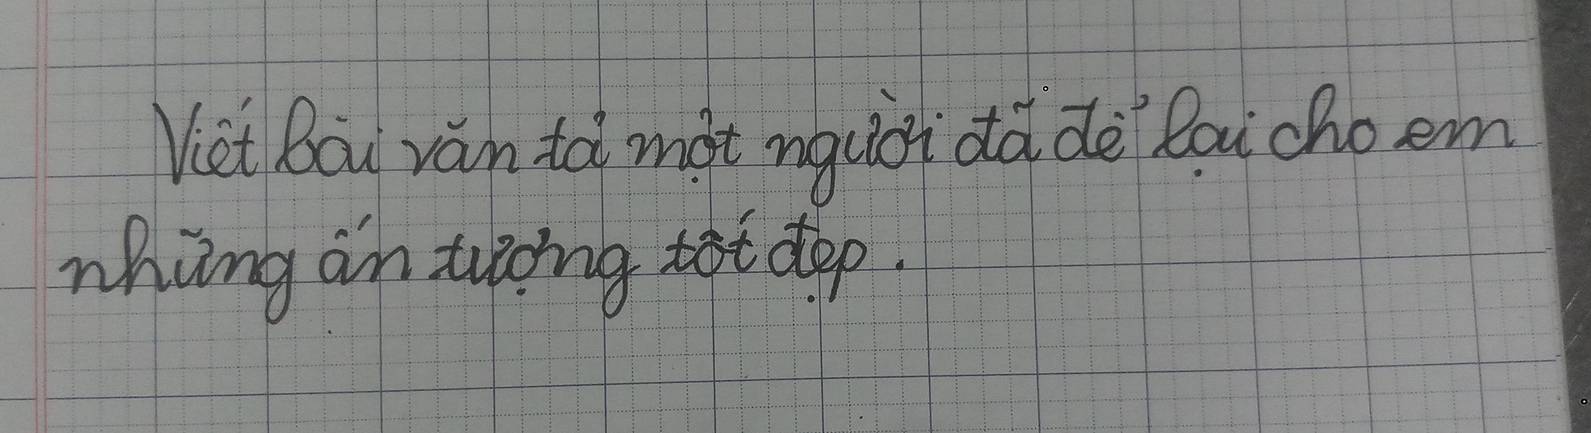 Viết bài văn tả một người đã để lại cho em
những ấn tượng tốt đẹp.